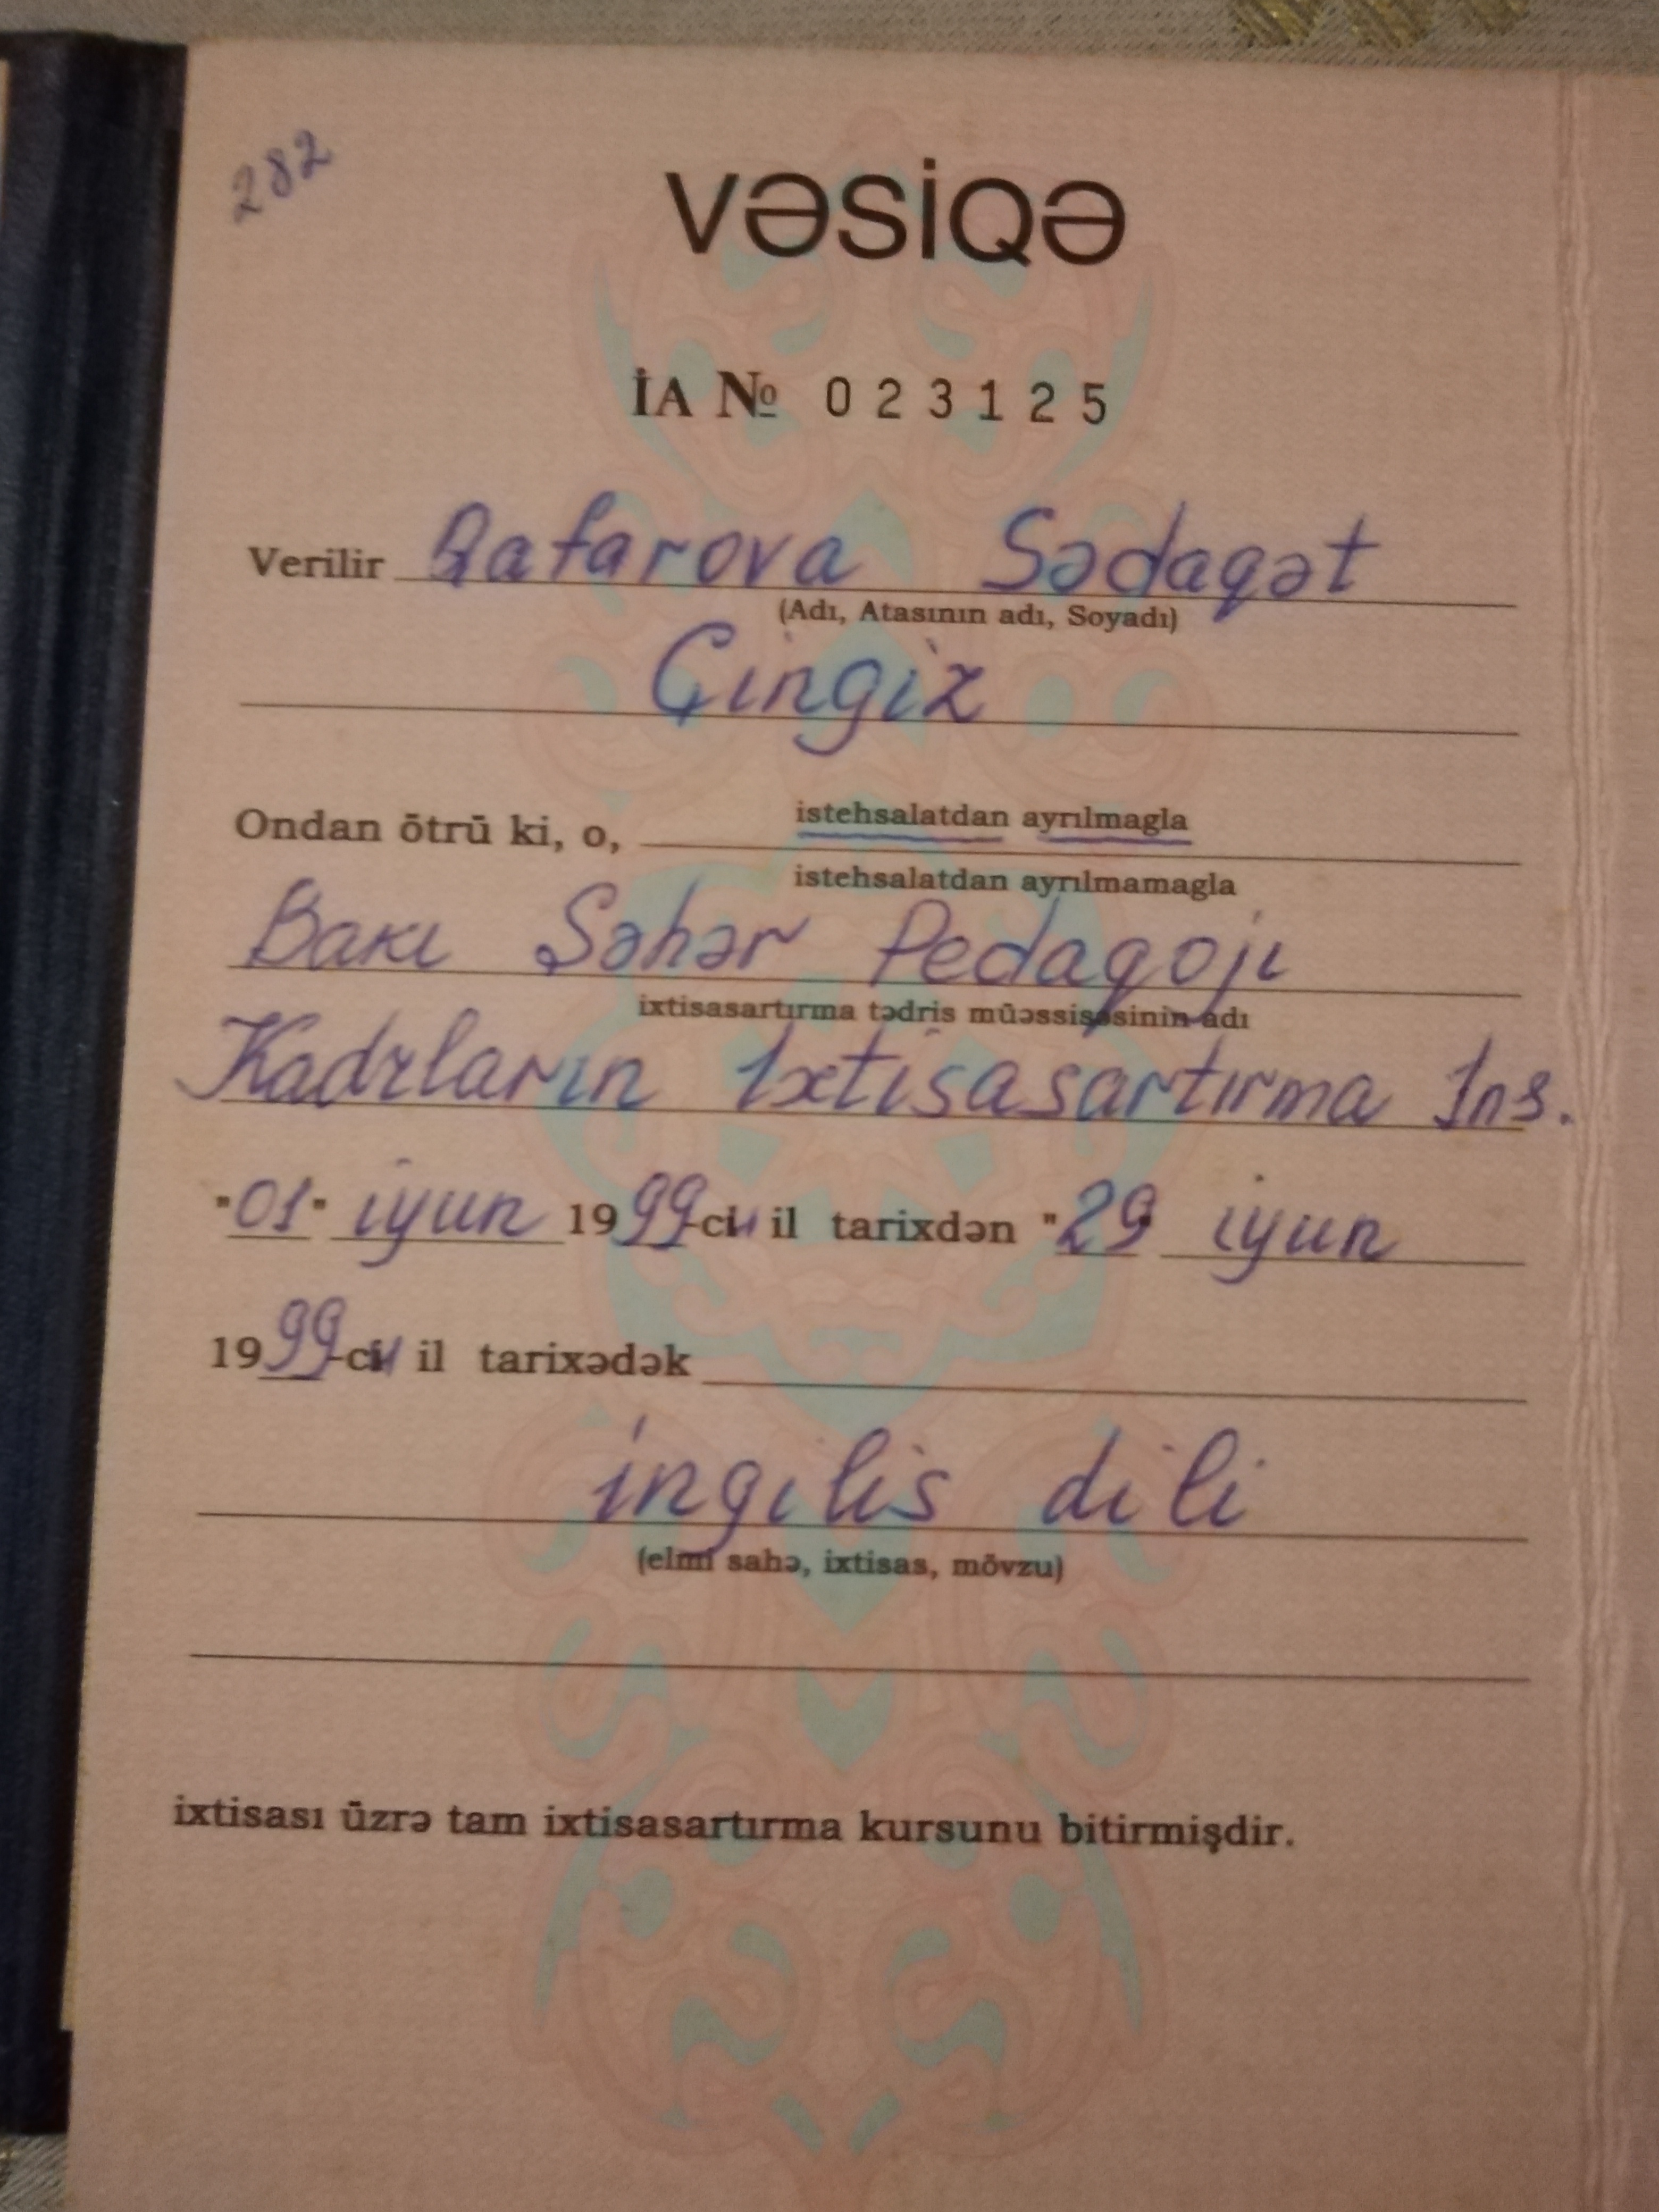 282
VƏSİQƏ
İA № 023125
Verilir Qafarova Sədaqət
(Adı, Atasının adı, Soyadı)
Çingiz
Ondan ötrü ki, o, istehsalatdan ayrılmagla
istehsalatdan ayrılmamagla
Bakı Şəhər Pedaqoji
ixtisasartırma tədris müəssisəsinin adı
Kadrların Ixtisasartırma Ins.
"01" iyun 1999-cu il tarixdən "29 iyun
1999-cu il tarixədək
ingilis dili
(elmi sahə, ixtisas, mövzu)
ixtisası üzrə tam ixtisasartırma kursunu bitirmişdir.